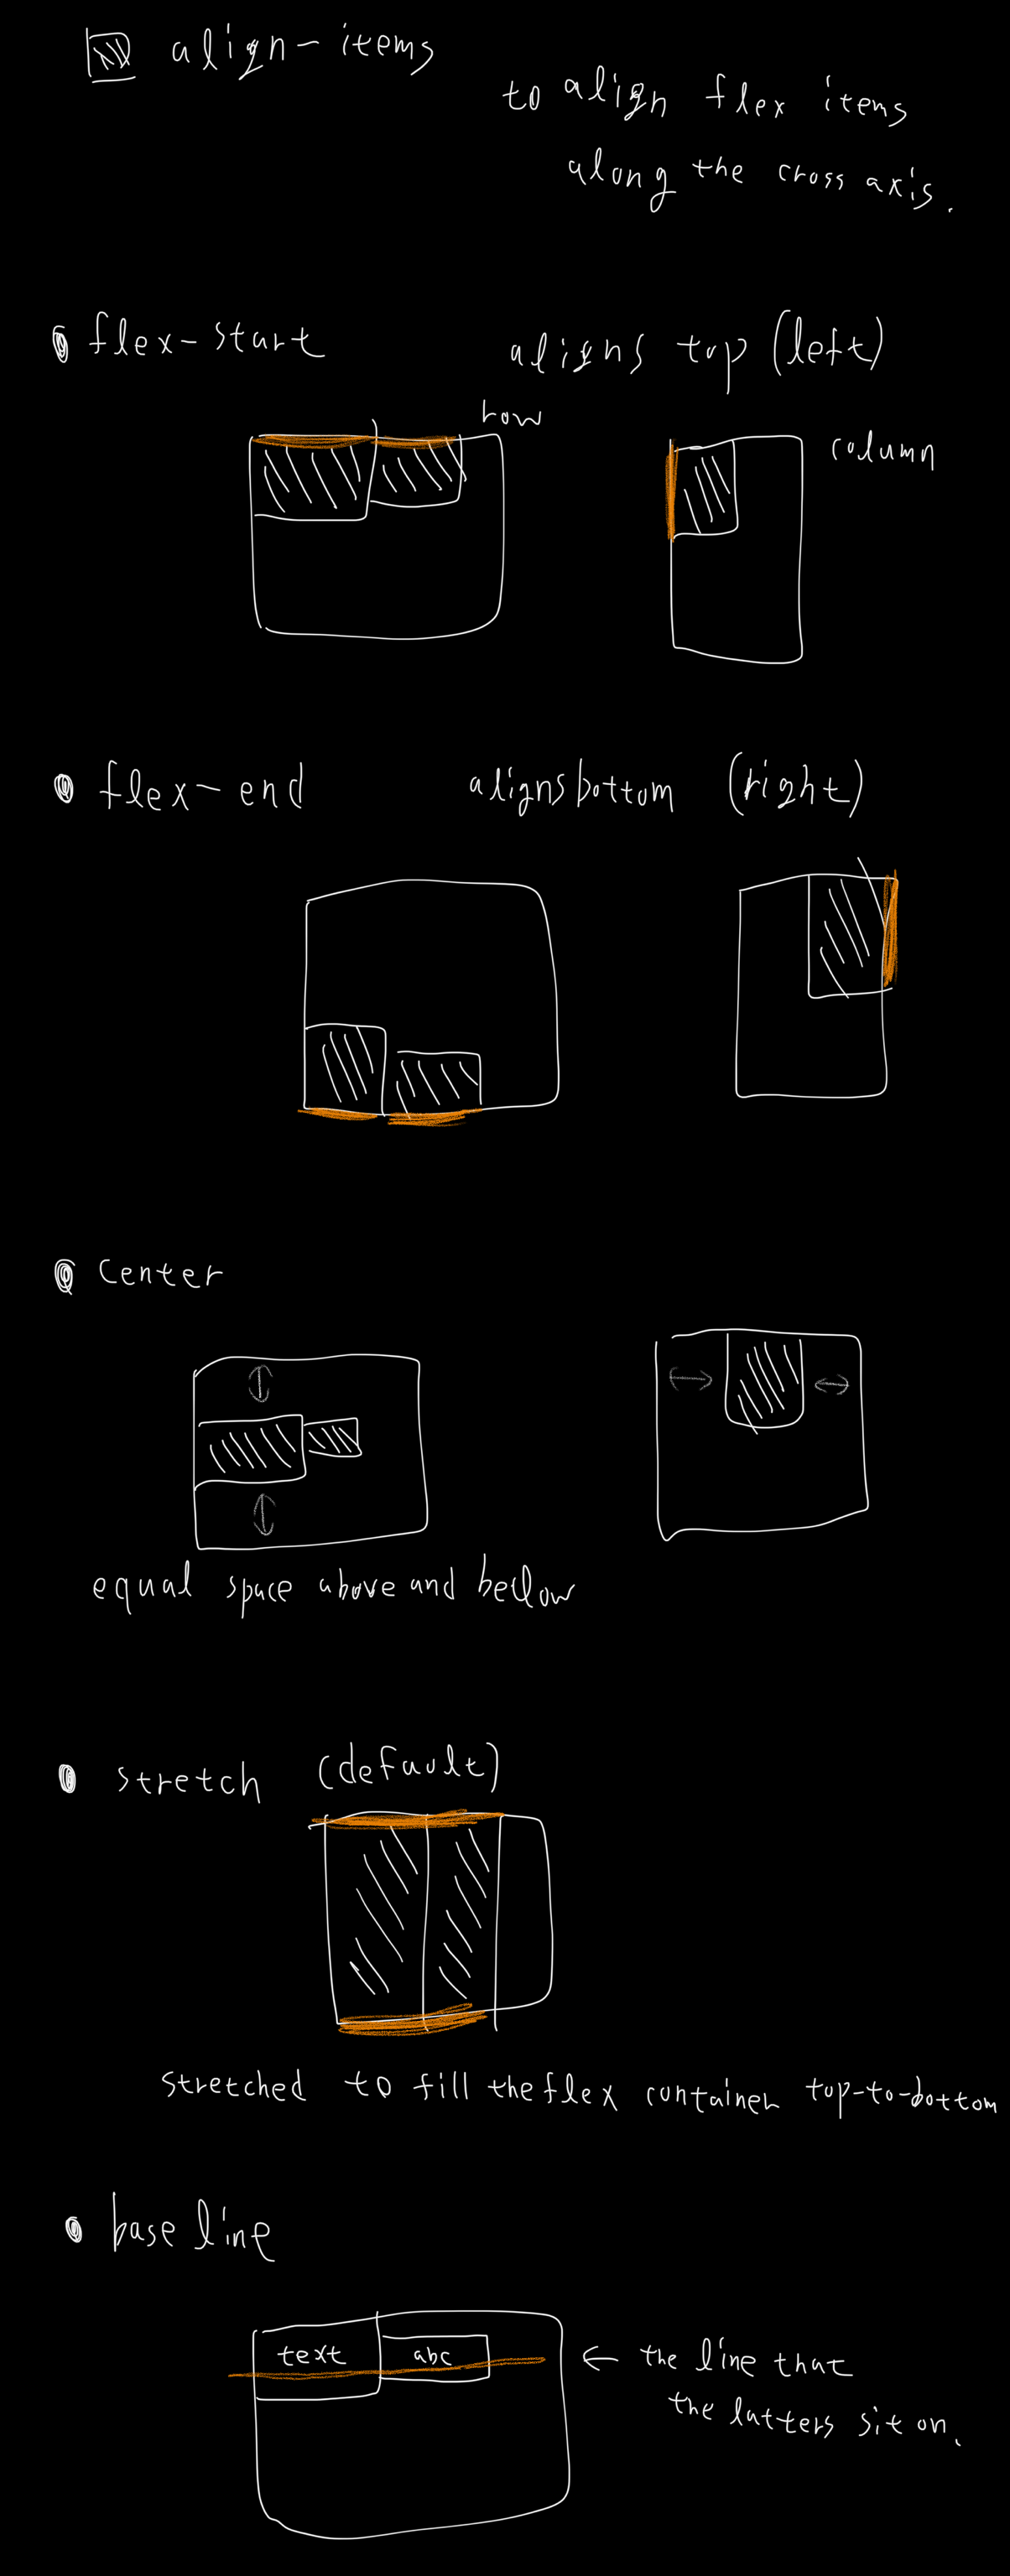 align-items
to align flex items
along the cross axis.
flex-start
aligns top (left)
row
column
flex-end
aligns bottom (right)
center
equal space above and bellow
stretch (default)
stretched to fill the flex container top-to-bottom
base line
text
abc
← the line that
the latters sit on.